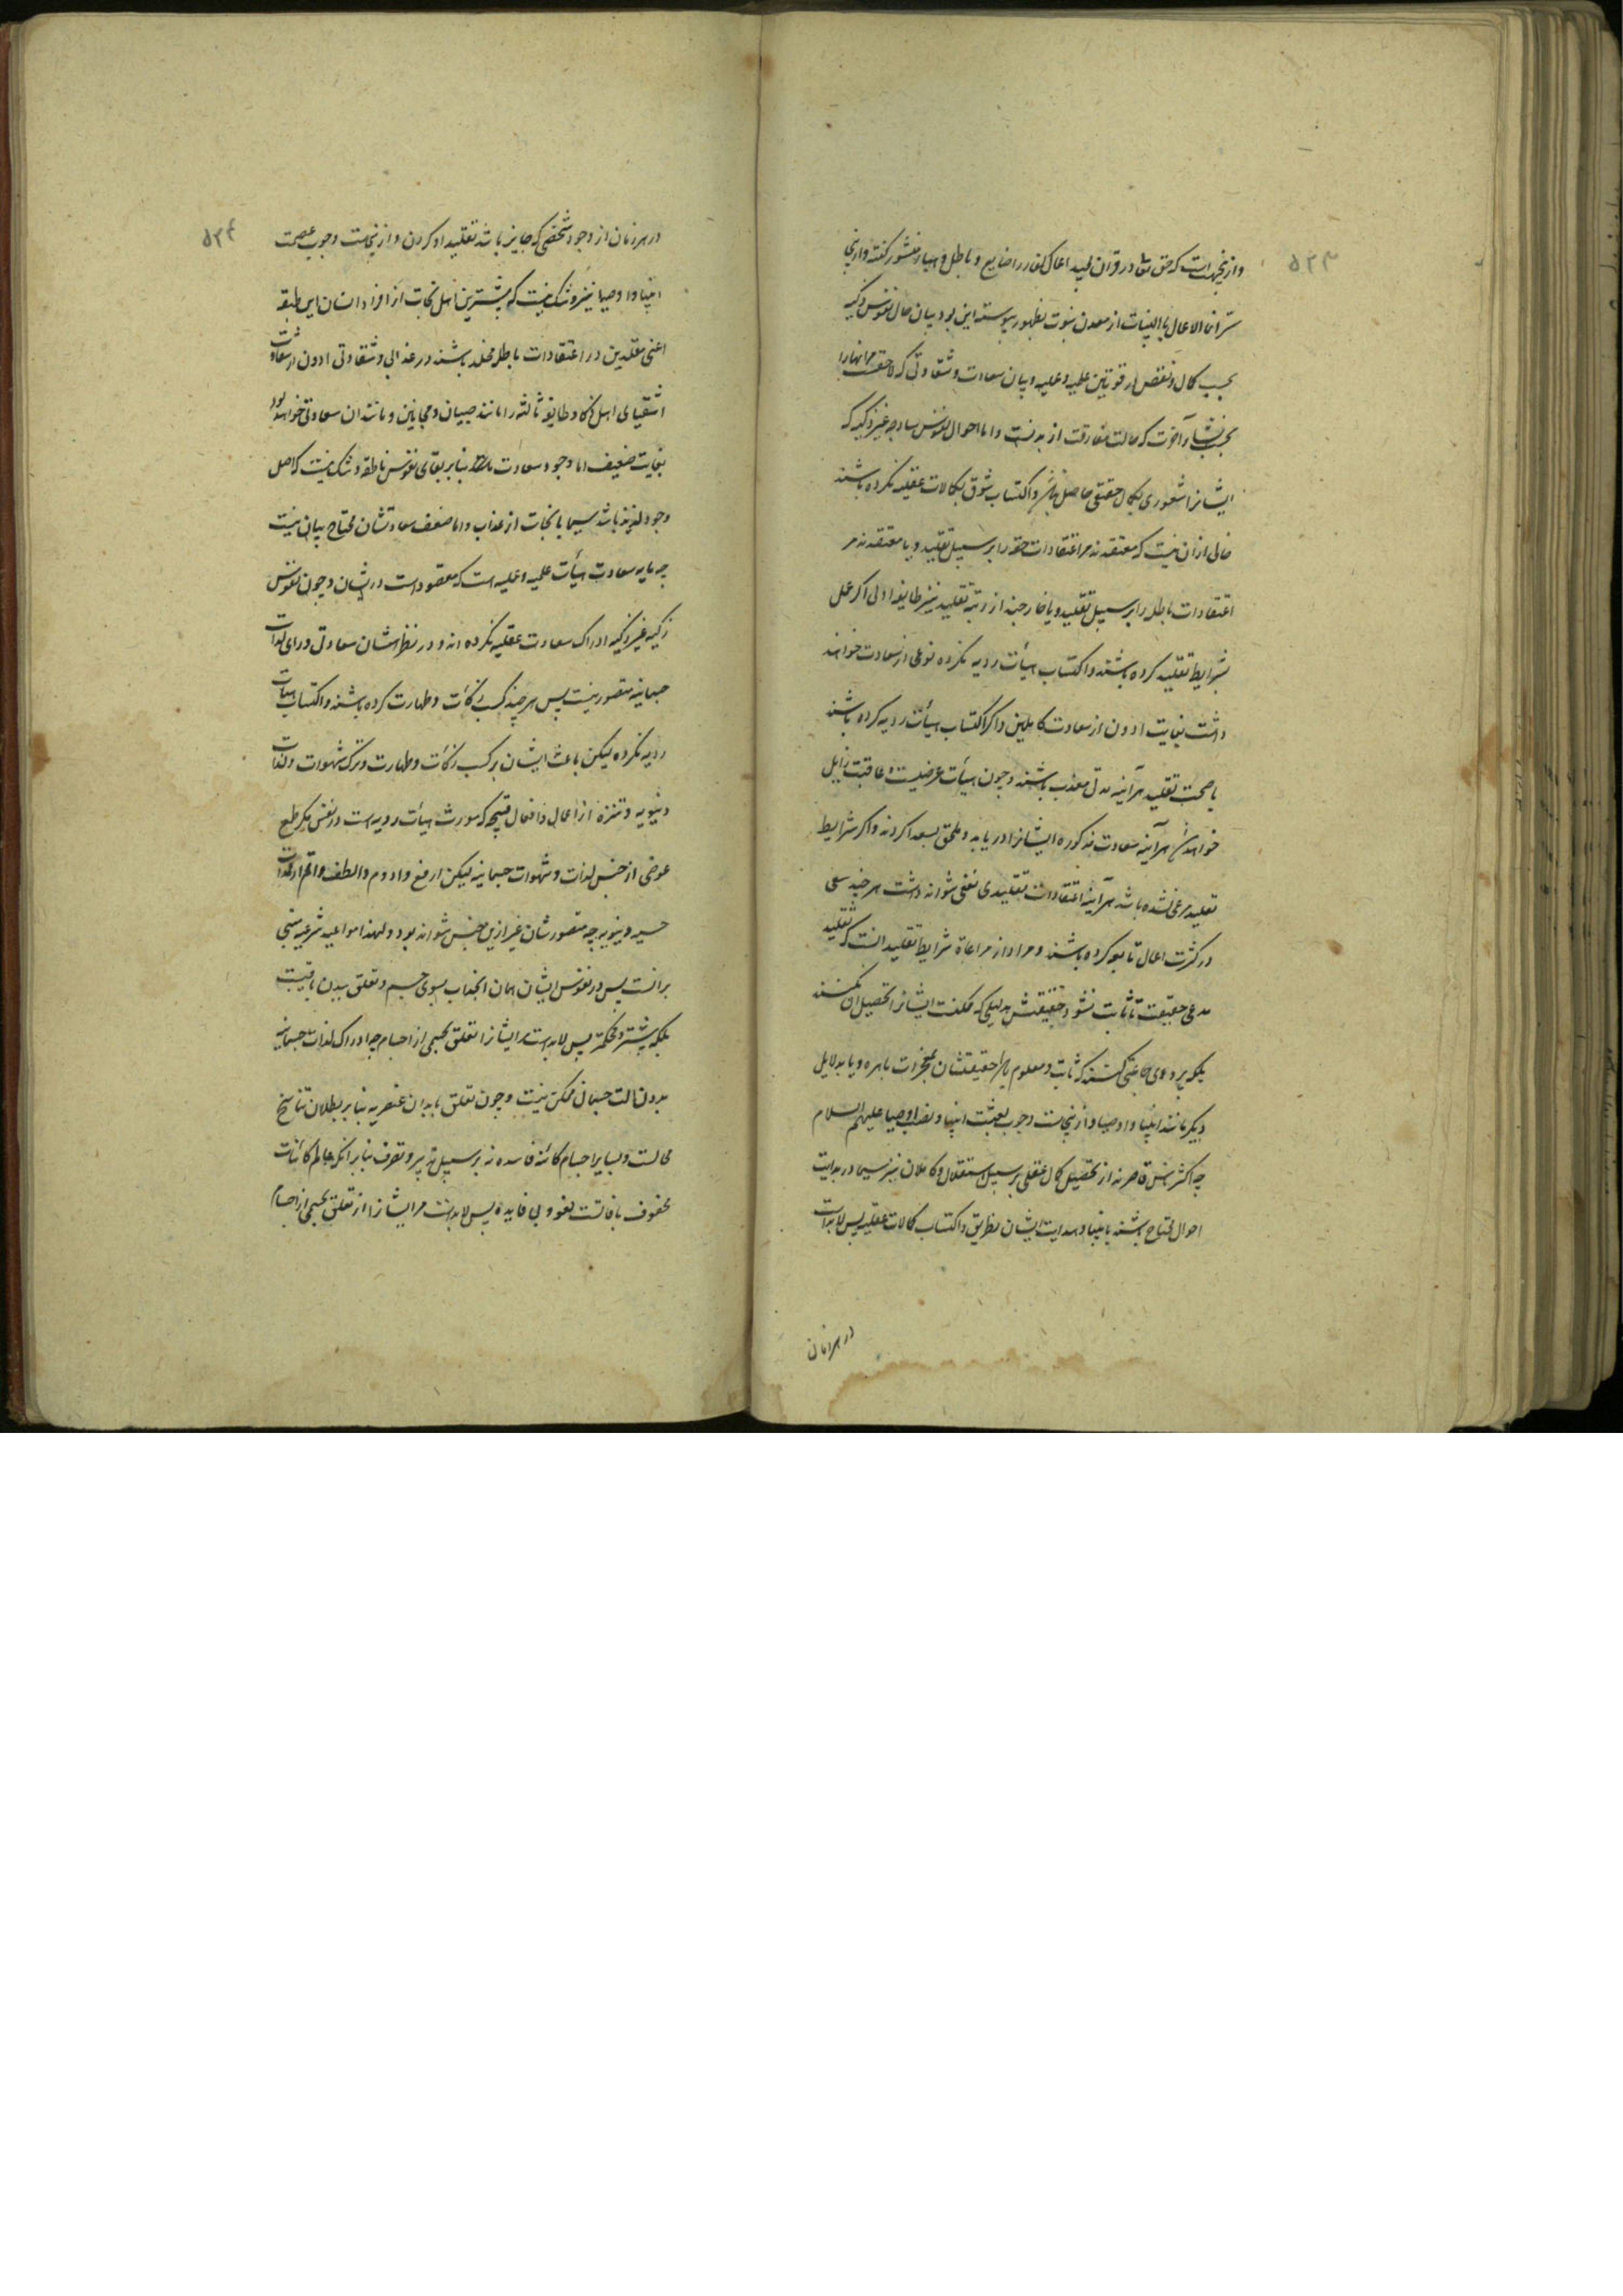 ۵۲۳
و ازینجهت است که حق تعالی در قران مجید اعمال کفار را ضایع و باطل و هباء منثور گفته و ازینجا
سّر انما الاعمال بالنیات از معدن نبوت بظهور پیوسته این بود بیان حال نفوس ذکیه
بحسب کمال و نقص در قوتین علمیه و عملیه و بیان سعادت و شقاوتی که لاحقست مر انها را
بحسب نشاء آخرت که حالت مفارقت از بدنست و اما احوال نفوس ساذجه غیر ذکیه که
ایشانرا شعوری بکمال حقیقی حاصل نباشد و اکتساب شوق بکمالات عقلیه نکرده باشند
خالی ازان نیست که معتقدند مر اعتقادات حقه را بر سبیل تقلید و یا معتقدند مر
اعتقادات باطله را بر سبیل تقلید و یا خارجند از رتبه تقلید نیز طایفه اولی اکر عمل
بشرایط تقلید کرده باشند و اکتساب هیأت ردیه نکرده نوعی از سعادت خواهند
داشت بغایت ادون از سعادت کاملین و اکر اکتساب هیأت ردیه کرده باشند
با صحت تقلید هرآینه مدتی معذب باشند و چون هیأت عرضیست و عاقبت زایل
خواهد شد هرآینه سعادت مذکوره ایشانرا دریابد و ملحق بسعدا کردند و اکر شرایط
تقلید مرعی نشده باشد هرآینه اعتقادات تقلیدی نفعی نتواند داشت هر چند سعی
در کثرت اعمال تابعه کرده باشند و مراد از مراعاة شرایط تقلید انست که تقلید
مدعی حقیقت تا ثابت نشود حقیقتش بدلیلی که ممکنست ایشانرا تحصیل ان نکنند
بلکه پیروی جماعتی کنند که ثابت و معلوم باشد حقیقتشان بمعجزات باهره و یا بدلایل
دیکر مانند انبیا و اوصیا و ازینجاست وجوب بعثت انبیا و نصب اوصیا علیهم السلام
چه اکثر ناس قاصرند از تحصیل کمال عقلی بر سبیل استقلال و کاملان نیز سیما در بدایت
احوال محتاج باشند بانبیا و هدایت ایشان بطریق و اکتساب کمالات عقلیه پس لابد است
در هر زمان
۵۲۴
در هر زمان از وجود شخصی که جایز باشد تقلید او کردن و ازینجاست وجوب عصمت
انبیا و اوصیا نیز و شک نیست که بیشترین اهل نجات از افراد انسان این طبقه
اعنی مقلدین در اعتقادات باطله مخلد باشند در عذابی و شقاوتی ادون از شقاوت
اشقیای اهل ذکا و طایفه ثالثه را مانند صبیان و مجانین و مانند ان سعادتی خواهد بود
بغایت ضعیف اما وجود سعادت بنابر بقای نفوس ناطقه و شک نیست که اصل
وجود لذیذ باشد سیما با نجات از عذاب و اما ضعف سعادتشان محتاج ببیان نیست
چه مایه سعادت هیأت علمیه و عملیه است که مفقود است در ایشان و چون نفوس
زکیه غیر ذکیه ادراک سعادت عقلیه نکرده اند و در نظر ایشان سعادتی ورای لذات
جسمانیه متصور نیست پس هر چند کسب زکات و طهارت کرده باشند و اکتساب هیأت
ردیه نکرده لیکن باعث ایشان بر کسب زکات و طهارت و ترک شهوات و لذات
دنیویه و تنزه از اعمال و افعال قبیحه که مورث هیأت ردیه است در نفس مکر طمع
عوضی از جنس لذات و شهوات جسمانیه لیکن ارفع و ادوم و الطف و اتم از لذات
حسیه دنیویه چه متصورشان غیر ازین جنس نتواند بود و لهذا مواعید شرعیه مبتنی
برانست پس در نفوس ایشان همان انجذاب بسوی جسم و تعلق ببدن باقیست
بلکه بیشتر و محکمتر پس لابد است مر ایشانرا تعلق بجسمی از اجسام چه ادراک لذات جسمانیه
بدون الت جسمانی ممکن نیست و چون تعلق بابدان عنصریه بنابر بطلان تناسخ
محالست و بسایر اجسام کائنه فاسده نه بر سبیل تدبیر و تصرف بنابر انکه عالم کائنات
محفوف بافاتست لغو و بی فایده پس لابد است مر ایشانرا از تعلق بجسمی از اجسام